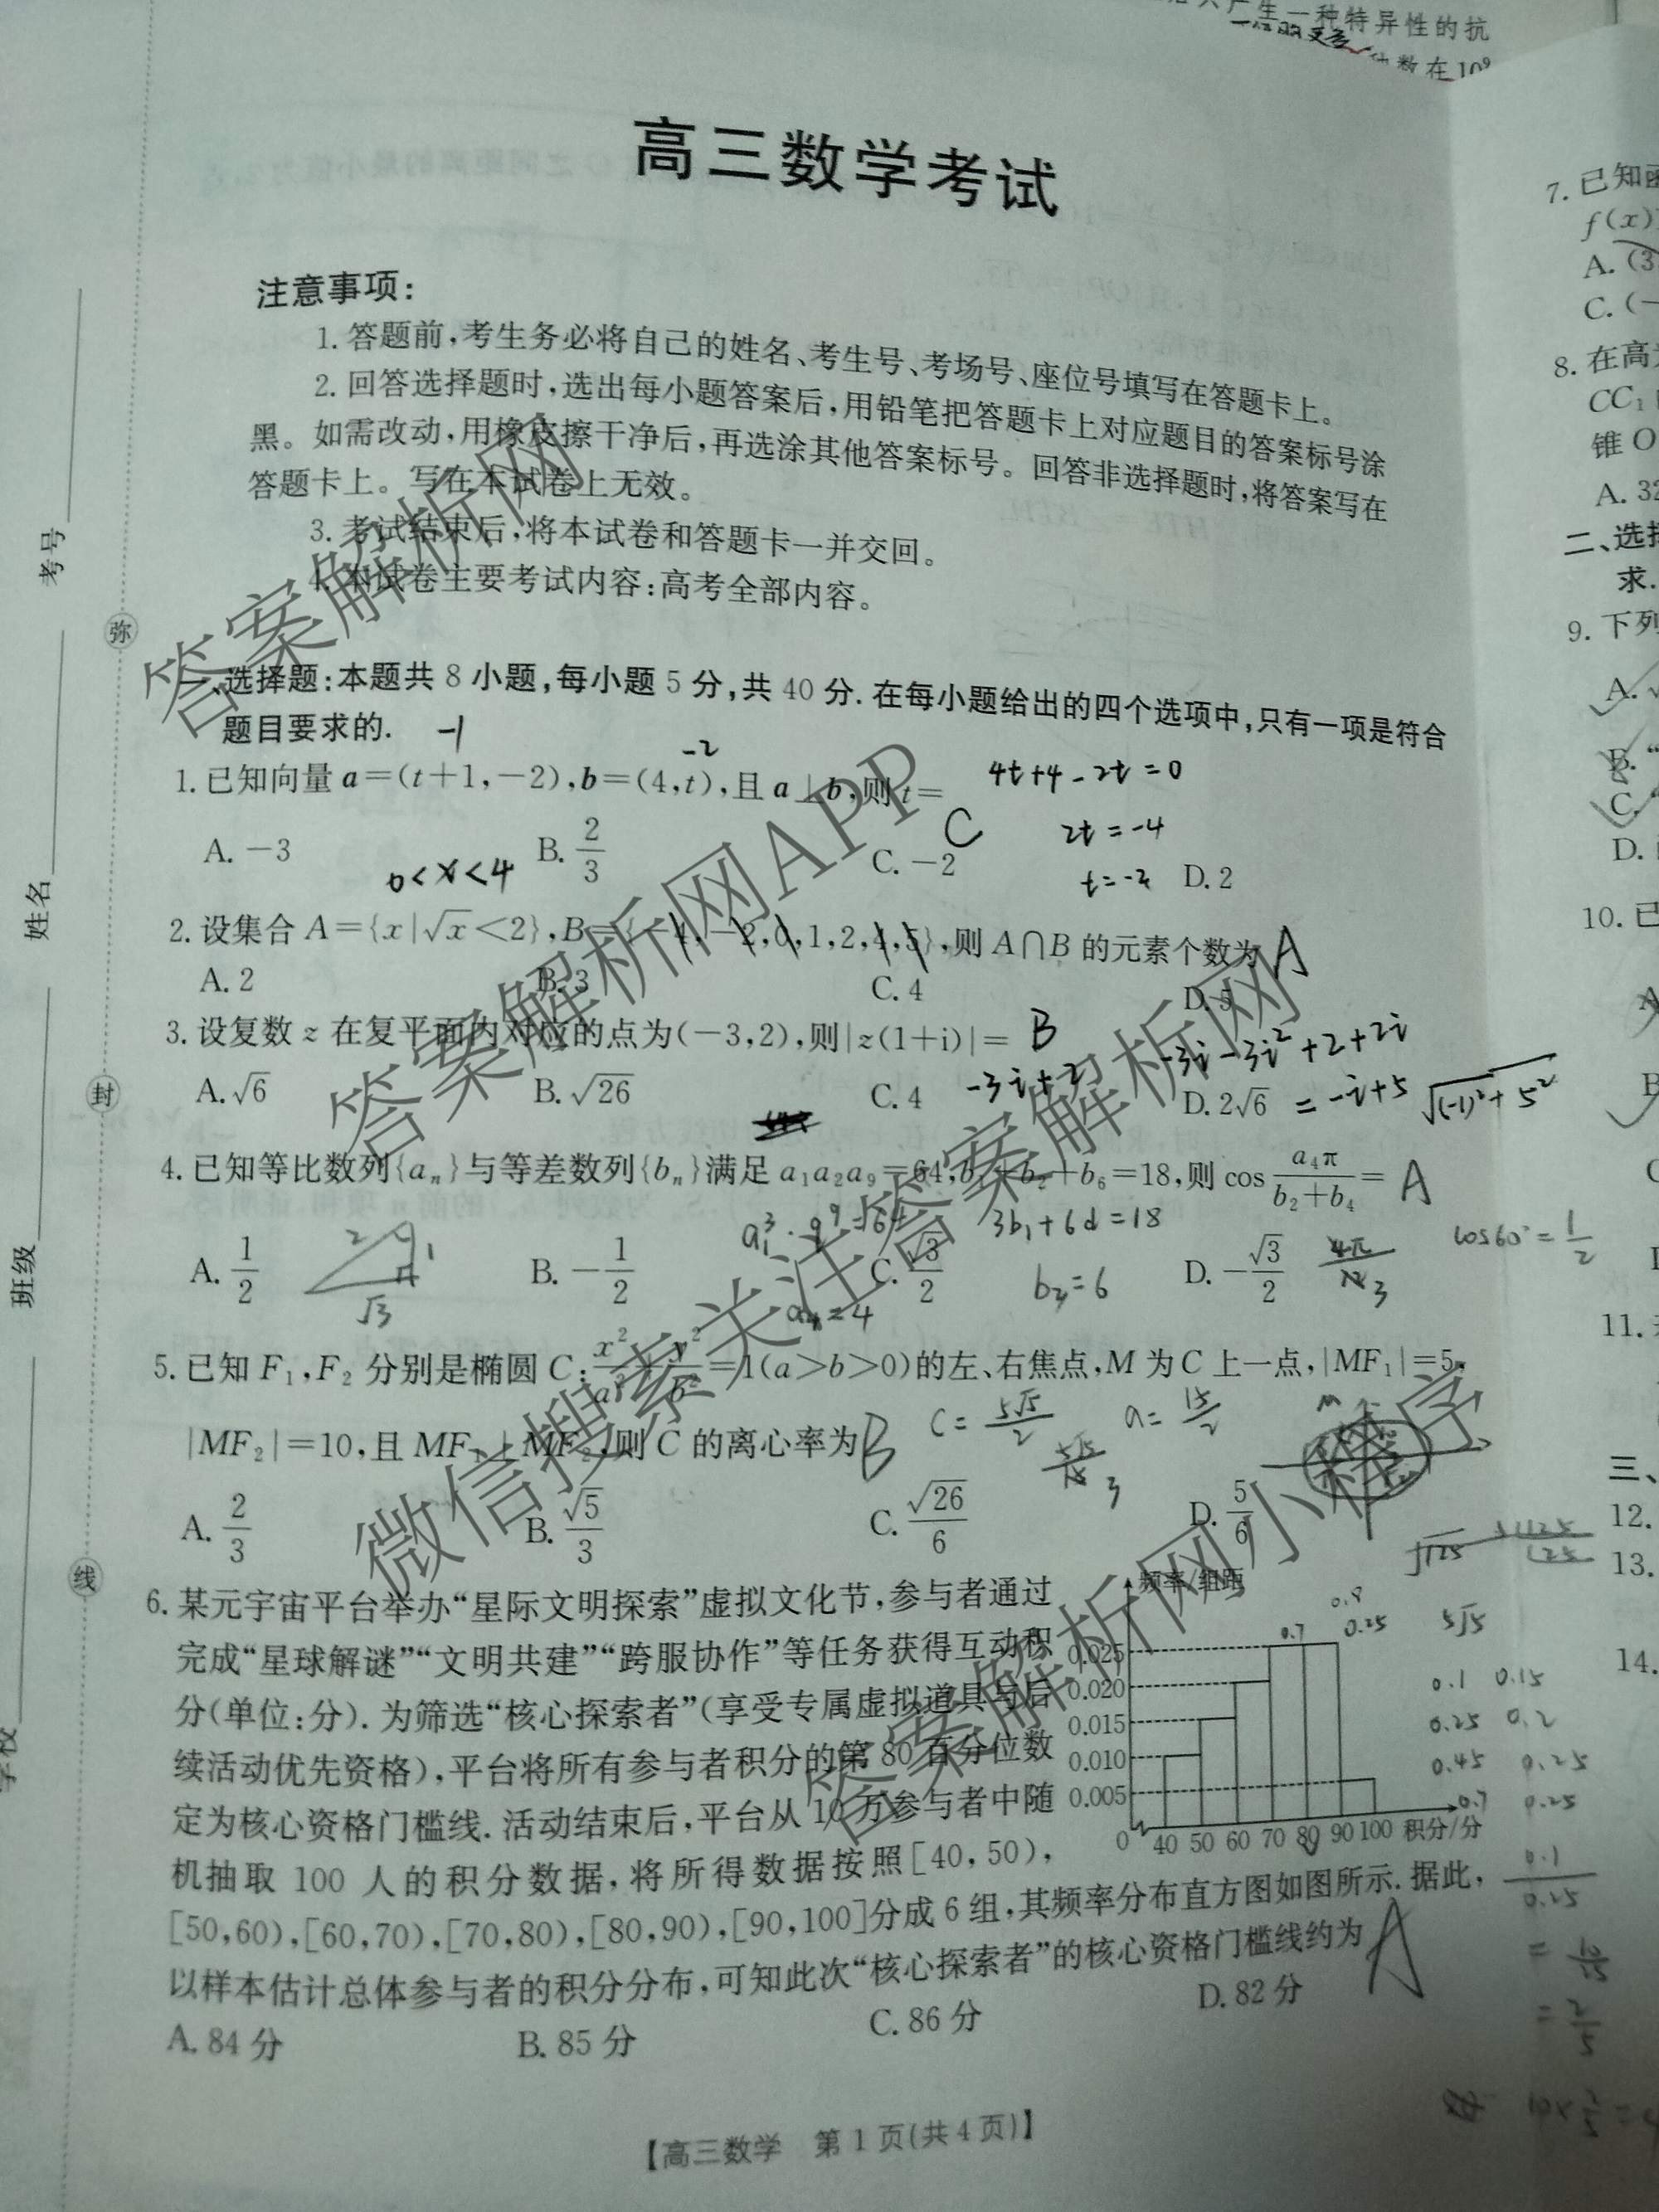 产生一种特异性的抗
数在10⁹
高三数学考试
注意事项:
1. 答题前,考生务必将自己的姓名、考生号、考场号、座位号填写在答题卡上。
2. 回答选择题时,选出每小题答案后,用铅笔把答题卡上对应题目的答案标号涂
黑。如需改动,用橡皮擦干净后,再选涂其他答案标号。回答非选择题时,将答案写在
答题卡上。写在本试卷上无效。
3. 考试结束后,将本试卷和答题卡一并交回。
4. 本试卷主要考试内容:高考全部内容。
一、选择题:本题共 8 小题,每小题 5 分,共 40 分. 在每小题给出的四个选项中,只有一项是符合
题目要求的.
-1
-2
1. 已知向量 a=(t+1,-2),b=(4,t),且 a⊥b,则 t=
4t+4-2t=0
C
2t=-4
t=-2
A. -3 B. 2/3 C. -2 D. 2
0<x<4
2. 设集合 A={x|√x<2},B={-4,-2,0,1,2,4,5},则 A∩B 的元素个数为 A
A. 2 B. 3 C. 4 D. 5
3. 设复数 z 在复平面内对应的点为(-3,2),则|z(1+i)|= B
-3i-3i²+2+2i
A. √6 B. √26 C. 4 D. 2√6
-3i+2
=-i+5 √(-1)²+5²
4. 已知等比数列{aₙ}与等差数列{bₙ}满足 a₁a₂a₉=64,b₁+b₂+b₆=18,则 cos a₄π/(b₂+b₄)= A
a₁³·q⁹=64
3b₁+6d=18
cos60°=1/2
A. 1/2 B. -1/2 C. √3/2 D. -√3/2
2
1
√3
a₄=4
b₃=6
3
5. 已知 F₁,F₂ 分别是椭圆 C: x²/a²+y²/b²=1(a>b>0)的左、右焦点,M 为 C 上一点,|MF₁|=5,
|MF₂|=10,且 MF₁⊥MF₂,则 C 的离心率为 B
c=5√5/2 a=15/2
3
A. 2/3 B. √5/3 C. √26/6 D. 5/6
√125
5√5
6. 某元宇宙平台举办“星际文明探索”虚拟文化节,参与者通过
完成“星球解谜”“文明共建”“跨服协作”等任务获得互动积
分(单位:分). 为筛选“核心探索者”(享受专属虚拟道具与后
续活动优先资格),平台将所有参与者积分的第 80 百分位数
定为核心资格门槛线. 活动结束后,平台从 10 万参与者中随
机抽取 100 人的积分数据,将所得数据按照[40,50),
[50,60),[60,70),[70,80),[80,90),[90,100]分成 6 组,其频率分布直方图如图所示. 据此,
以样本估计总体参与者的积分分布,可知此次“核心探索者”的核心资格门槛线约为 A
A. 84 分 B. 85 分 C. 86 分 D. 82 分
频率/组距
0.025
0.020
0.015
0.010
0.005
0 40 50 60 70 80 90 100 积分/分
0.7
0.25
0.1 0.15
0.25 0.2
0.45 0.25
0.7 0.25
0.1
0.25
=2/5
【高三数学 第 1 页(共 4 页)】
考号
姓名
班级
学校
弥
封
线
7. 已知函
f(x)
A. (3
C. (-
8. 在高为
CC₁
锥 O
A. 32
二、选择
求.
9. 下列
A. √
B. “
C. “
D.
10. 已
A
B
C
11.
三、
12.
13.
14.
答案解析网
答案解析网APP
微信搜索关注答案解析网
答案解析网小程序